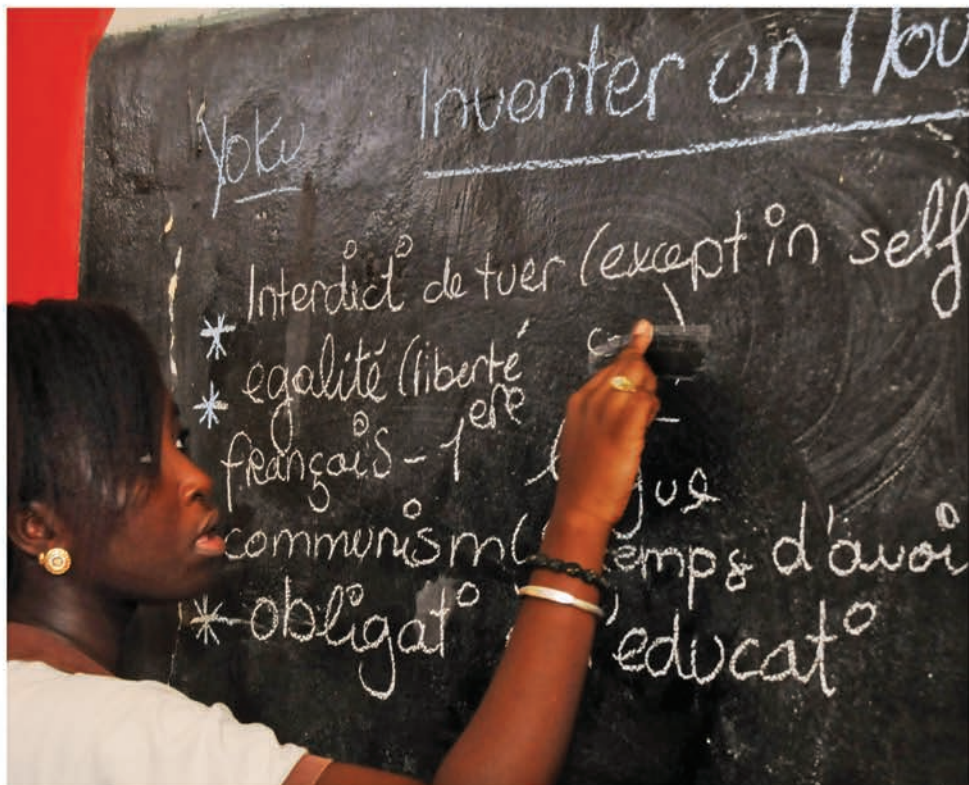 Inventer un Nou
Yoku
Interdict° de tuer (except in self
egalité (liberté
français - 1ere
communism( temps d'avoi
obligat° l'educat°